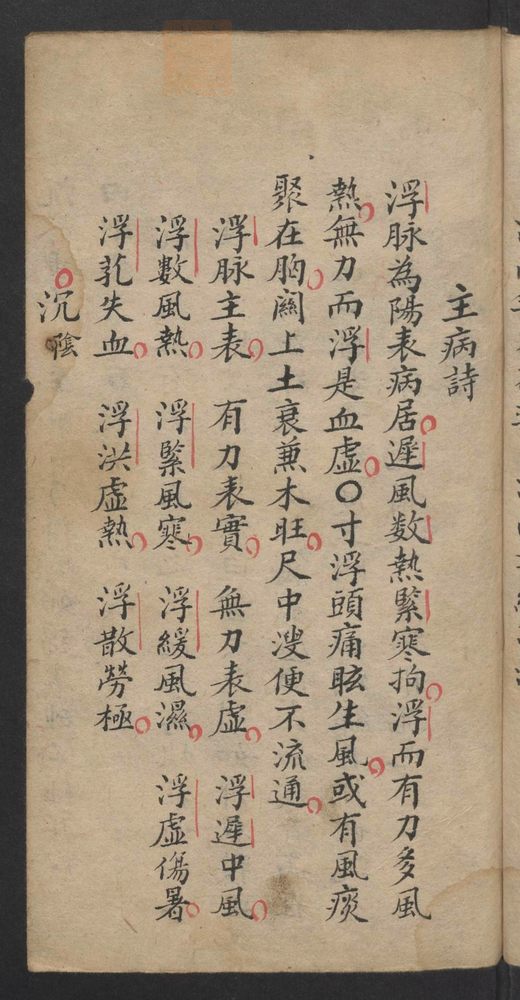 主病詩
浮脉為陽表病居遲風数熱緊寒拘浮而有力多風
熱無力而浮是血虛〇寸浮頭痛眩生風或有風痰
聚在胸関上土衰兼木旺尺中溲便不流通
浮脉主表 有力表實 無力表虛 浮遲中風
浮數風熱 浮緊風寒 浮緩風濕 浮虛傷暑
浮芤失血 浮洪虛熱 浮散勞極
沉陰